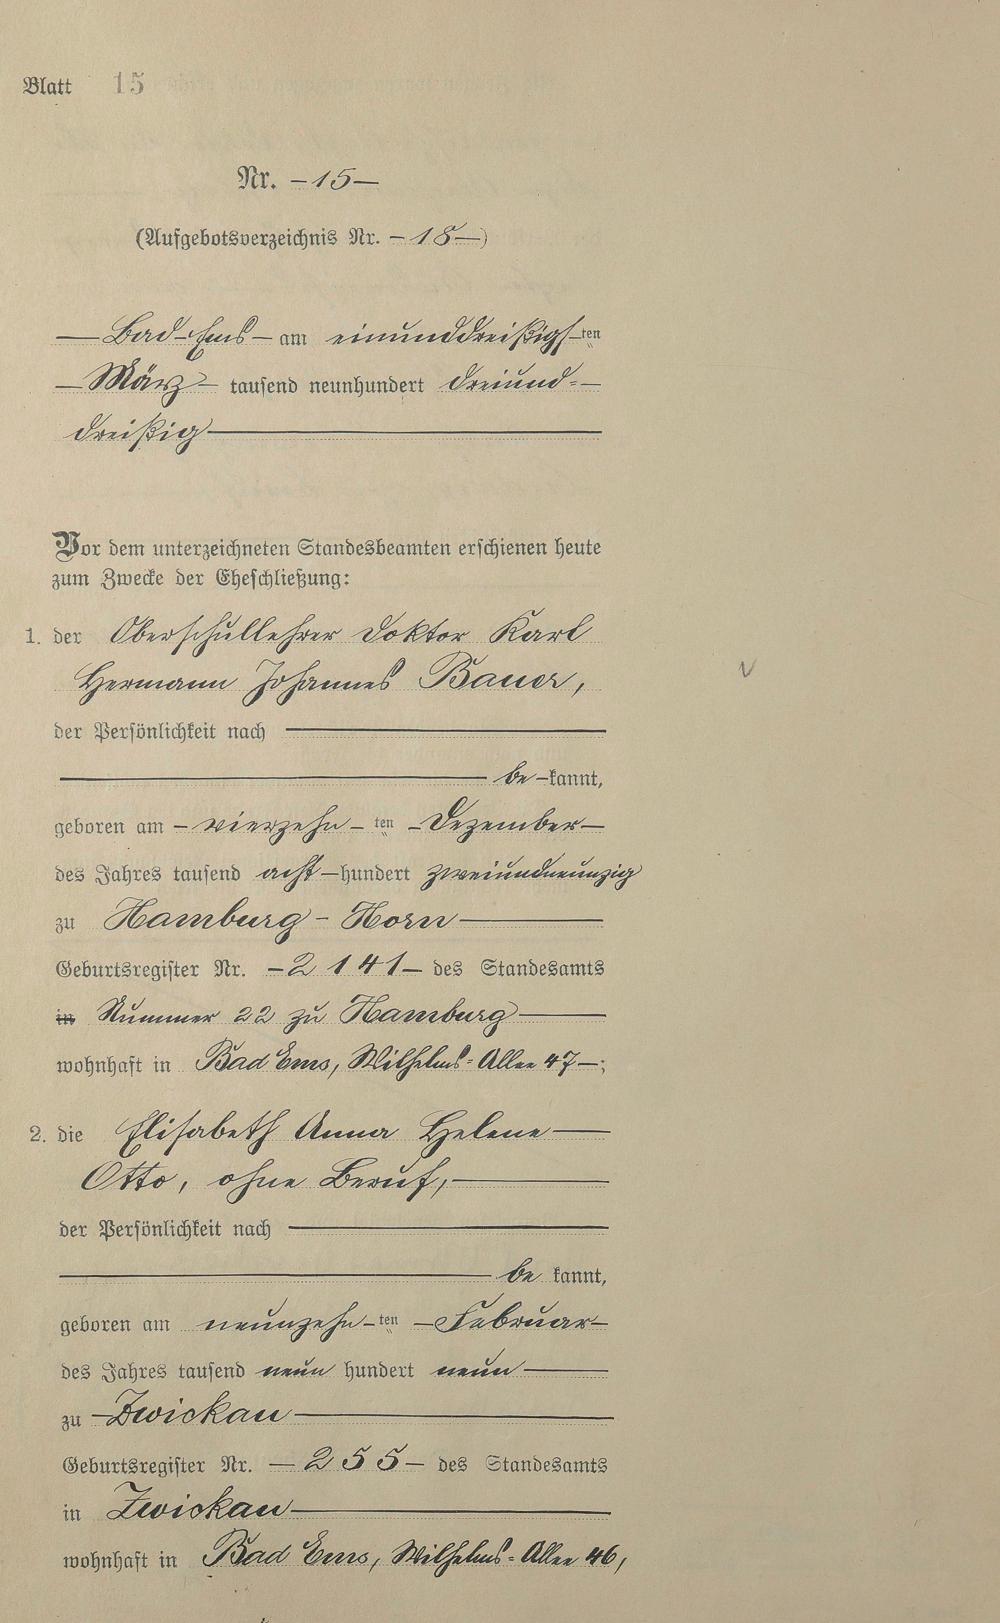 Blatt 15
Nr. -15-
(Aufgebotsverzeichnis Nr. -18-)
Bad-Ems- am einunddreißigs-ten
März- tausend neunhundert dreiund=
dreißig
Vor dem unterzeichneten Standesbeamten erschienen heute
zum Zwecke der Eheschließung:
1. der Oberschullehrer Doktor Karl
Hermann Johannes Bauer,
der Persönlichkeit nach
be-kannt,
geboren am - vierzehn-ten Dezember-
des Jahres tausend acht-hundert zweiundneunzig
zu Hamburg - Horn
Geburtsregister Nr. -2141- des Standesamts
in Nummer 22 zu Hamburg
wohnhaft in Bad Ems, Wilhelms=Allee 47-;
2. die Elisabeth Anna Helene
Otto, ohne Beruf,
der Persönlichkeit nach
be kannt,
geboren am neunzehn-ten -Februar-
des Jahres tausend neun hundert neun
zu -Zwickau
Geburtsregister Nr. -255- des Standesamts
in Zwickau
wohnhaft in Bad Ems, Wilhelms=Allee 46,